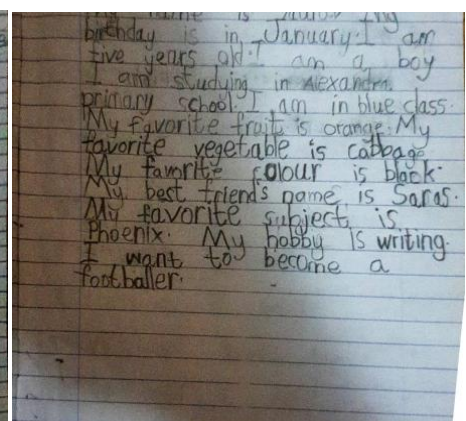 name is my
birthday is in January. I am
five years old. I am a boy
I am studying in Alexandra
primary school. I am in blue class.
My favorite fruit is orange. My
favorite vegetable is cabbage
My favorite colour is black.
My best friend's name is Saras.
My favorite subject is
Phoenix. My hobby is writing.
I want to become a
footballer.